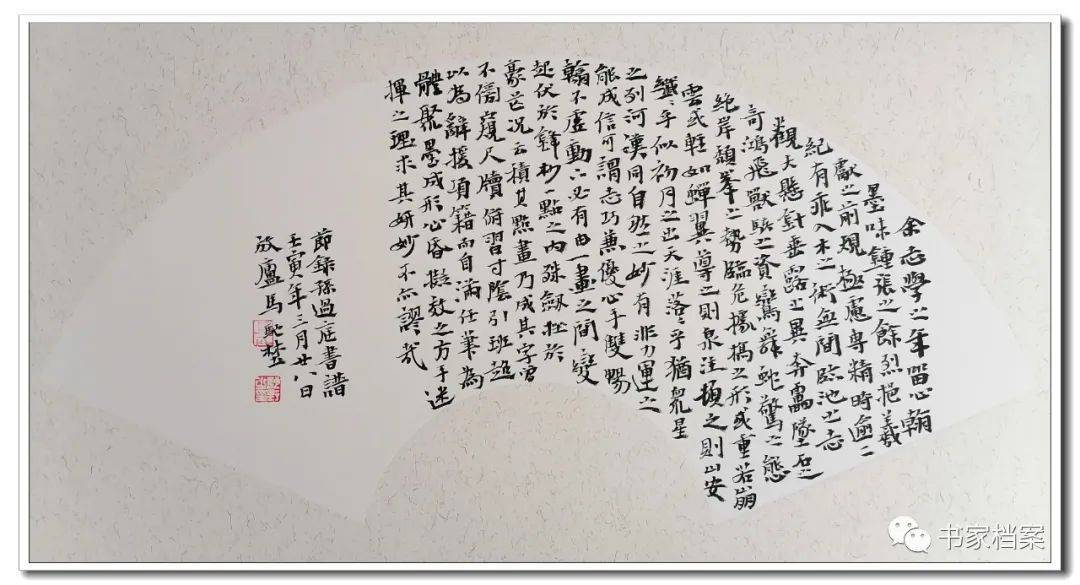 余志學之年留心翰
墨味鍾張之餘烈挹羲
獻之前規極慮專精時逾二
紀有乖入木之術無間臨池之志
觀夫懸針垂露之異奔雷墜石之
奇鴻飛獸駭之資鸞舞蛇驚之態
絕岸頹峯之勢臨危據槁之形或重若崩
雲或輕如蟬翼導之則泉注頓之則山安
纖〻乎似初月之出天涯落乎猶眾星
之列河漢同自然之妙有非力運之
能成信可謂志巧兼優心手雙暢
翰不虛動下必有由一畫之間變
起伏於鋒杪一點之內殊挫於
豪芒況云積其點畫乃成其字曾
不傍窺尺牘俯習寸陰引班超
以為辭援項籍而自滿任筆為
體聚墨成形心昏擬效之方手迷
揮之理求其妍妙不亦謬哉
節錄孫過庭書譜
壬寅年三月廿八日
放廬馬馳楚
书家档案